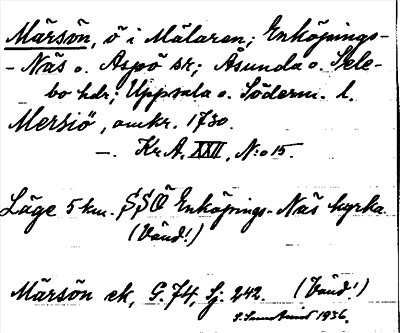 Märsön, ö i Mälaren; Enköpings-
-Näs o. Aspö sr; Åsunda o. Sele-
bo hdr; Uppsala o. Söderm. l.
Mersiö, omkr. 1730.
—. Kr.A. XXII, N:o 15.
Läge 5 km. SSÖ Enköpings-Näs kyrka.
(Vänd!)
Märsön ek, G. 74, Sj. 242. (Vänd!)
1936.